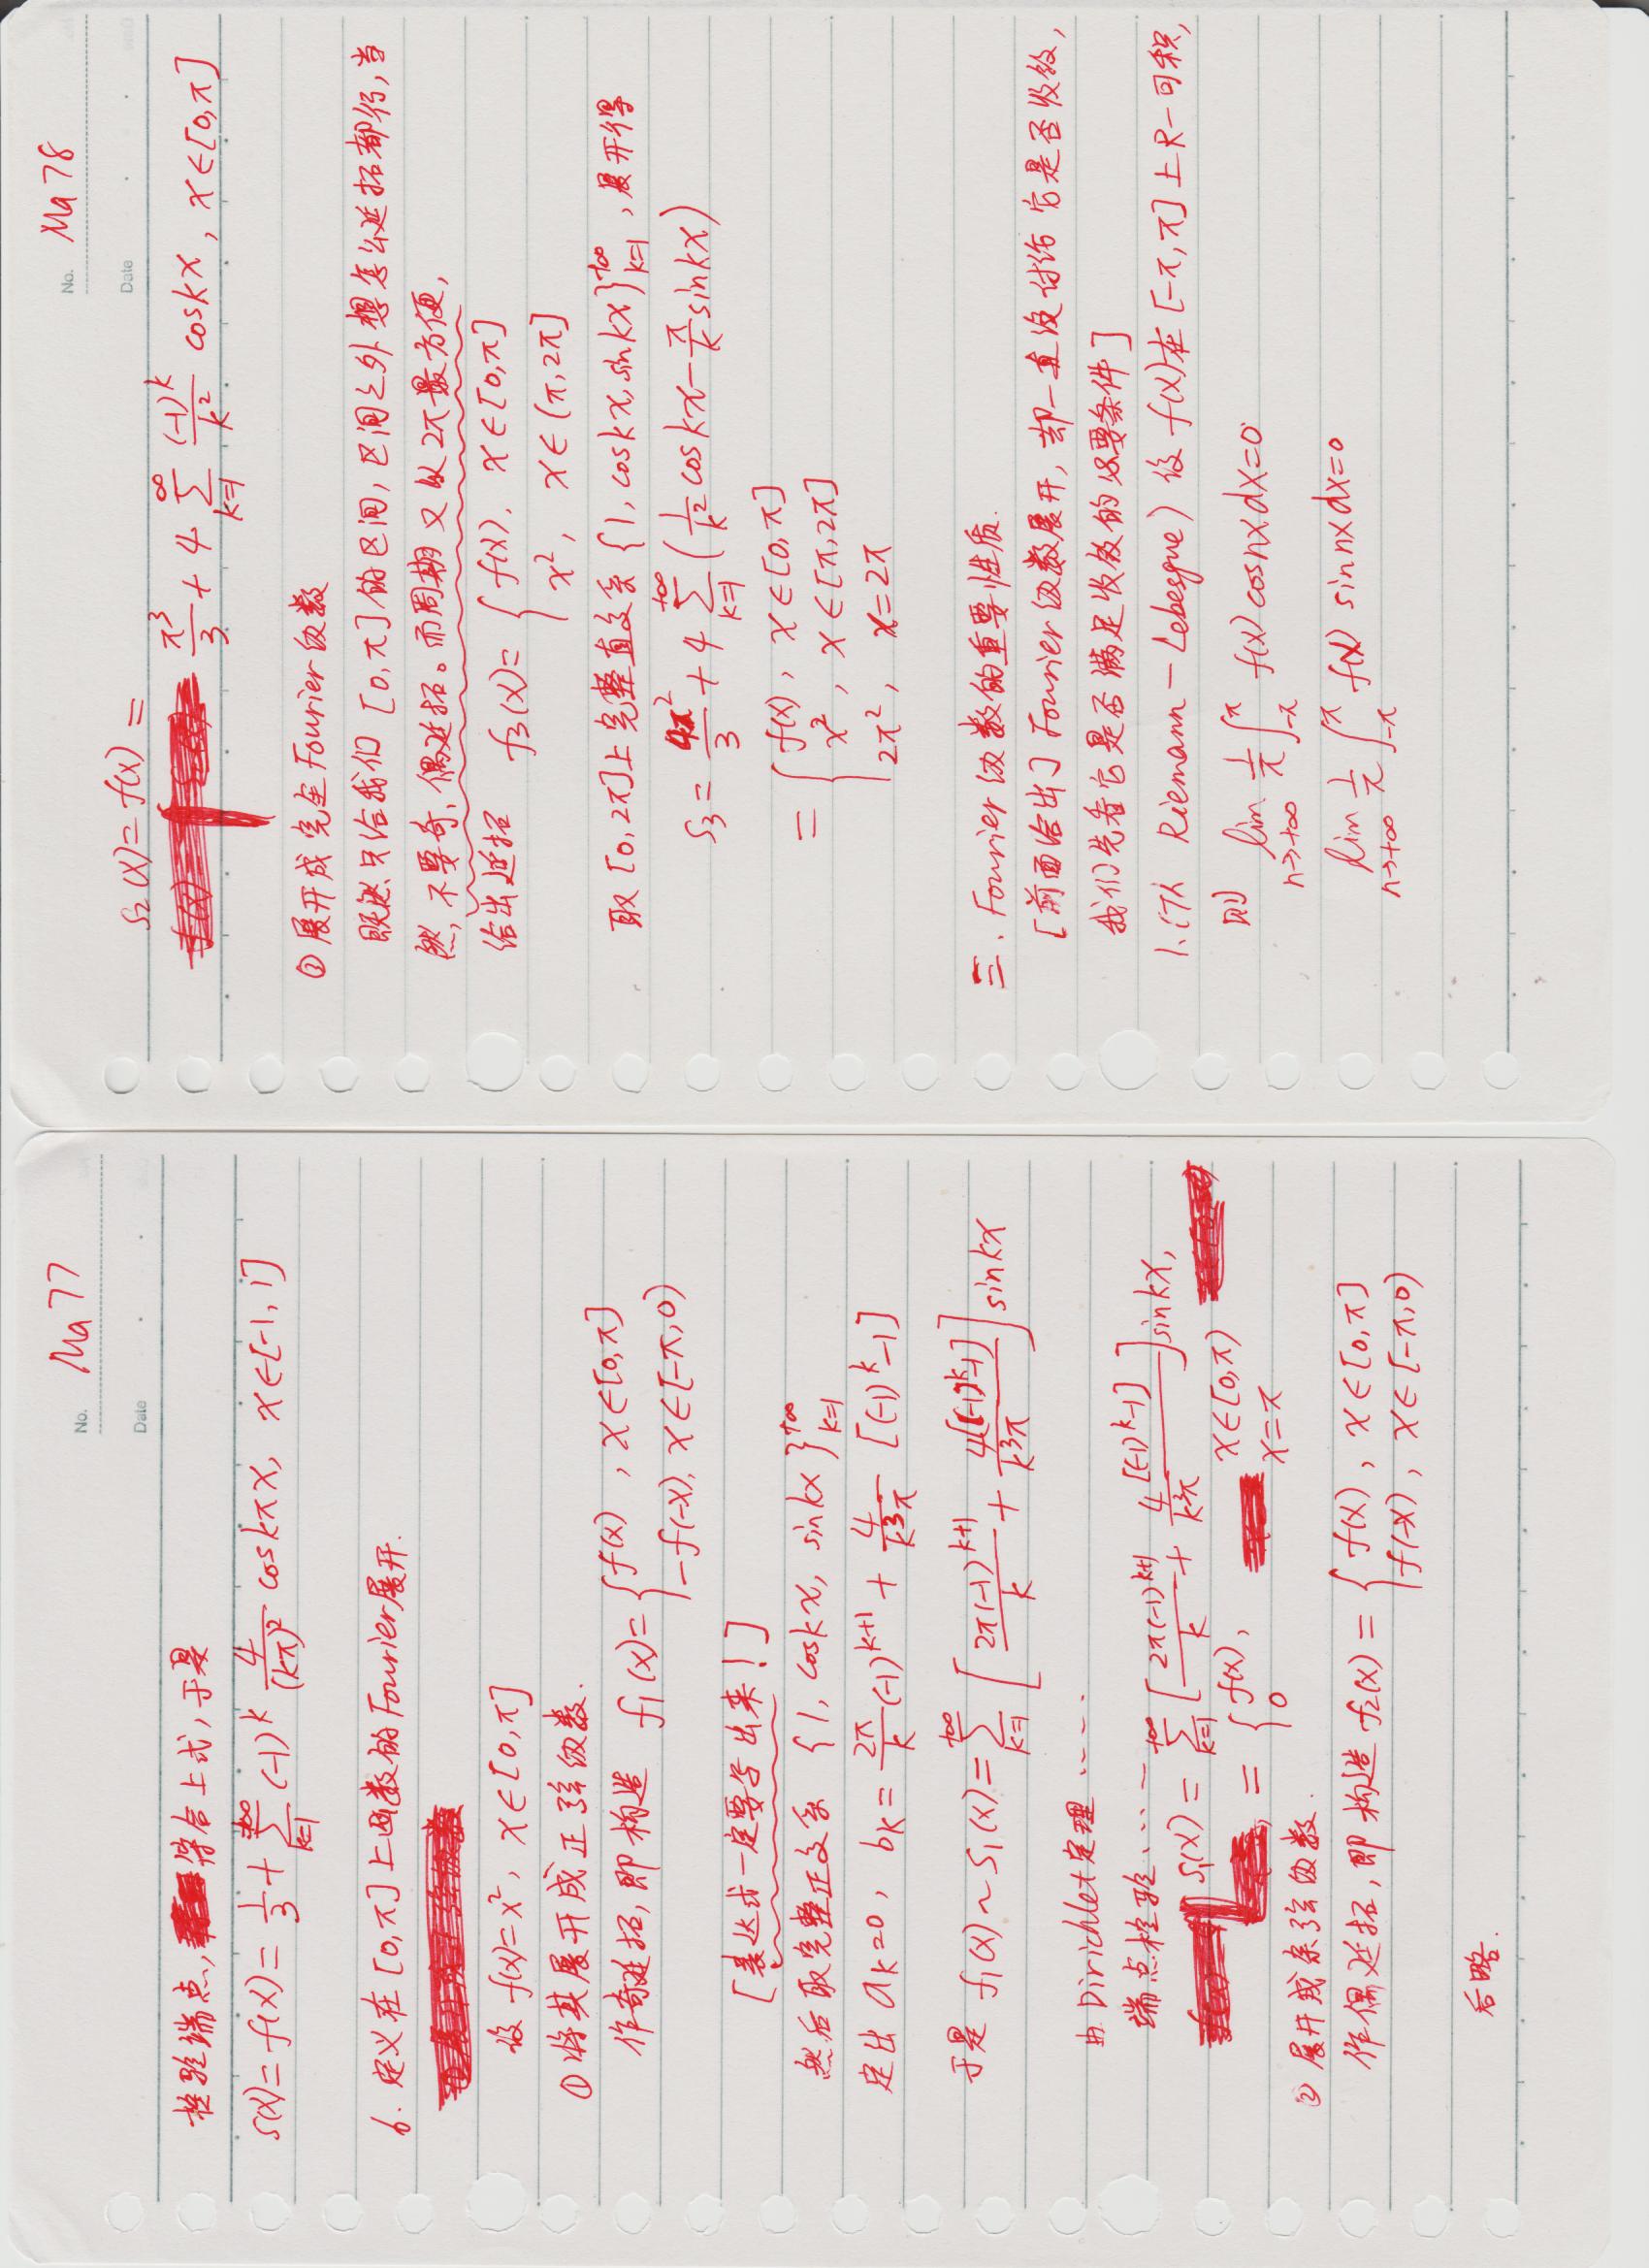 No. Ma 77
Date
检验端点, 符合上式, 于是
S(x)=f(x)= 1/3 + ∑_{k=1}^{+∞} (-1)^k 4/(kπ)² cos kπx, x∈[-1, 1]
6. 定义在 [0,π] 上函数的Fourier展开.
设 f(x)=x², x∈[0,π]
① 将其展开成正弦级数.
作奇延拓, 即构造 f₁(x)= { f(x), x∈[0,π]
-f(-x), x∈[-π,0)
[表达式一定要写出来!]
然后取完整正交系 {1, cos kx, sin kx}_{k=1}^{+∞}
定出 a_k=0, b_k= 2π/k (-1)^{k+1} + 4/(k³π) [(-1)^k-1]
于是 f₁(x)~S₁(x)= ∑_{k=1}^{+∞} [ 2π(-1)^{k+1}/k + 4[(-1)^k-1]/(k³π) ] sin kx
由 Dirichlet定理 ……
端点检验 ……
S₁(x) = ∑_{k=1}^{+∞} [ 2π(-1)^{k+1}/k + 4[(-1)^k-1]/(k³π) ] sin kx,
= { f(x), x∈[0,π)
0 x=π
② 展开成余弦级数.
作偶延拓, 即构造 f₂(x) = { f(x), x∈[0,π]
f(-x), x∈[-π,0)
后略.
No. Ma 78
Date
S₂(x)= f(x) =
π³/3 + 4 ∑_{k=1}^{∞} (-1)^k/k² cos kx, x∈[0,π]
③ 展开成完全Fourier级数
既然只给我们 [0,π] 的区间, 区间之外想怎么延拓都行, 当
然, 不要奇, 偶延拓。而周期又以 2π 最方便,
给出延拓 f₃(x)= { f(x), x∈[0,π]
x², x∈(π,2π]
取 [0,2π]上完整直交系 {1, cos kx, sin kx}_{k=1}^{+∞}, 展开得
S₃ = 4π²/3 + 4 ∑_{k=1}^{+∞} ( 1/k² cos kx - π/k sin kx )
= { f(x), x∈[0,π]
x², x∈[π,2π]
2π², x=2π
三. Fourier级数的重要性质.
[前面给出] Fourier级数展开, 却一直没讨论它是否收敛,
我们先看它是否满足收敛的必要条件]
1. (Th Riemann-Lebesgue) 设 f(x)在 [-π,π] 上R-可积,
则 lim_{n→+∞} 1/π ∫_{-π}^{π} f(x) cos nx dx=0
lim_{n→+∞} 1/π ∫_{-π}^{π} f(x) sin nx dx=0